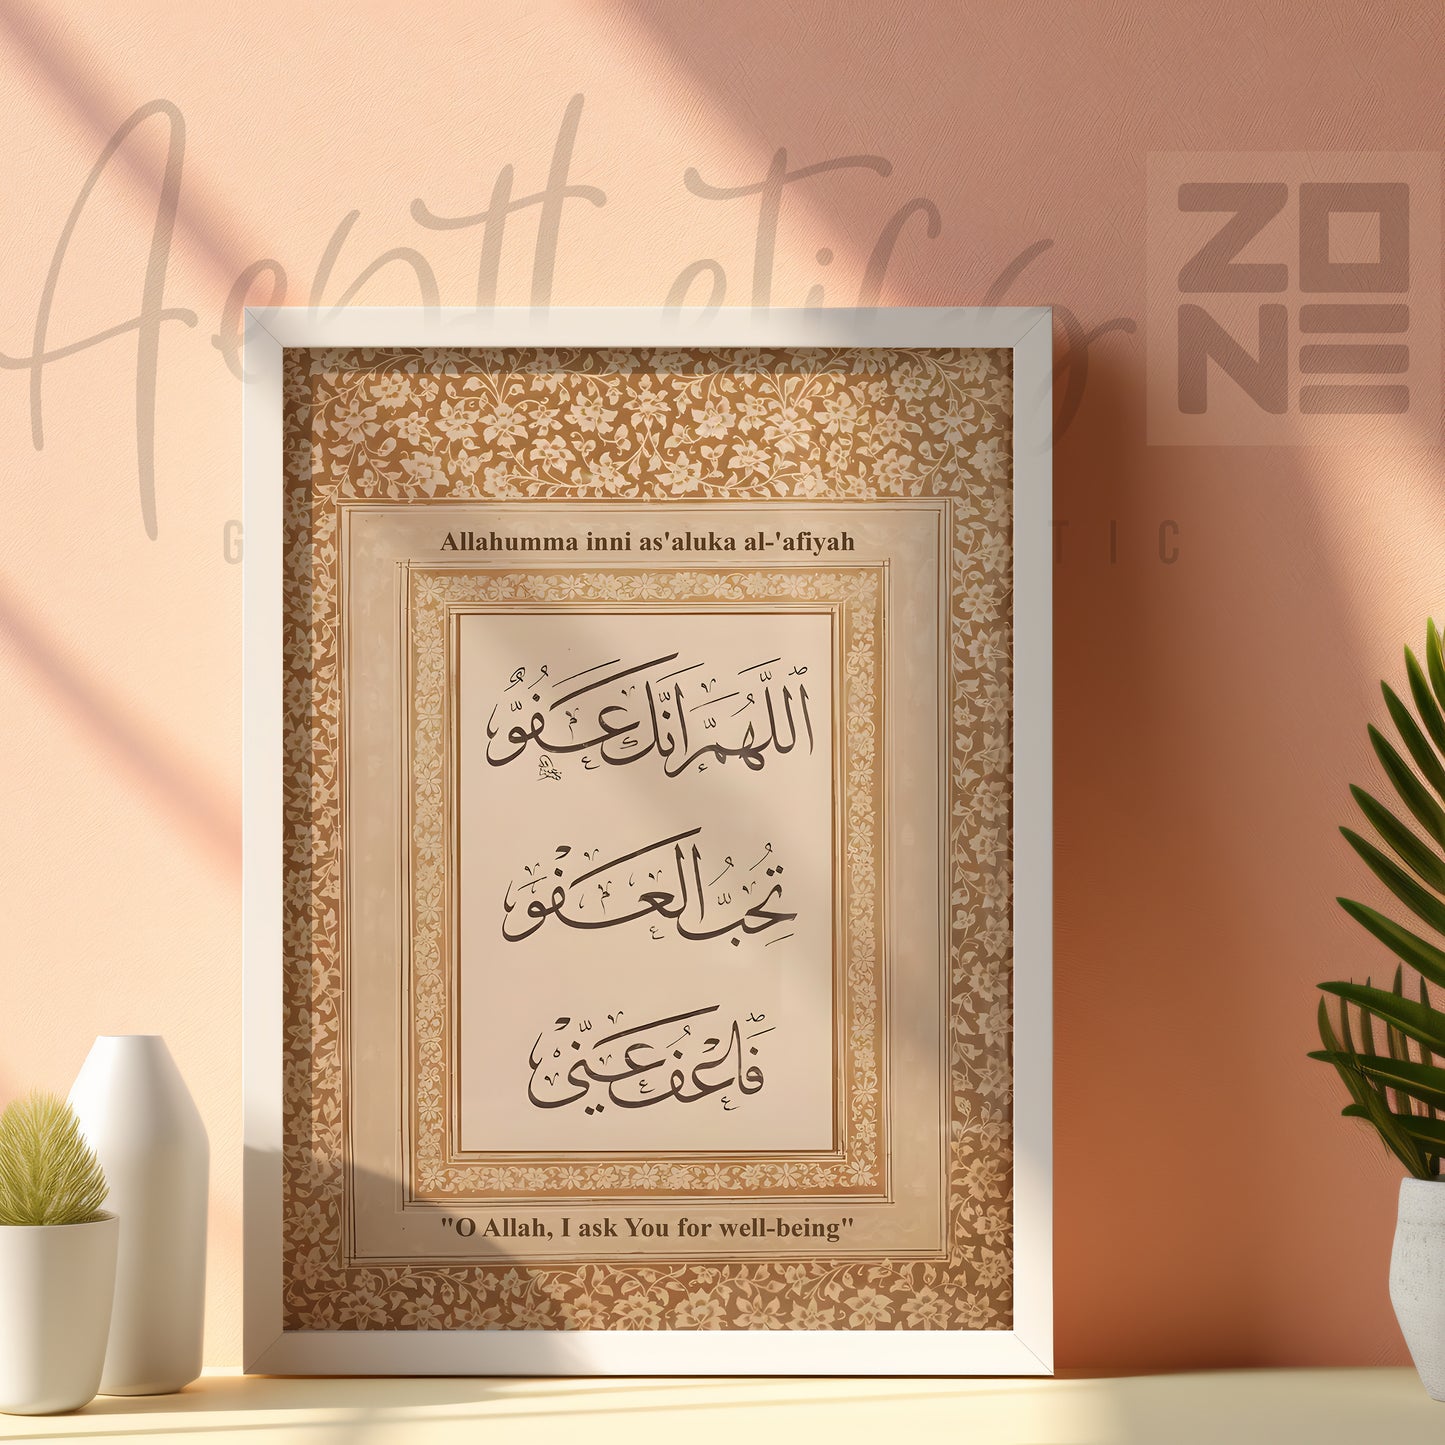 Aesthetics
ZO
NE
Allahumma inni as'aluka al-'afiyah
اَللَّهُمَّ اِنَّكَ عَفُوٌّ
تُحِبُّ الْعَفْوَ
فَاعْفُ عَنِّي
"O Allah, I ask You for well-being"